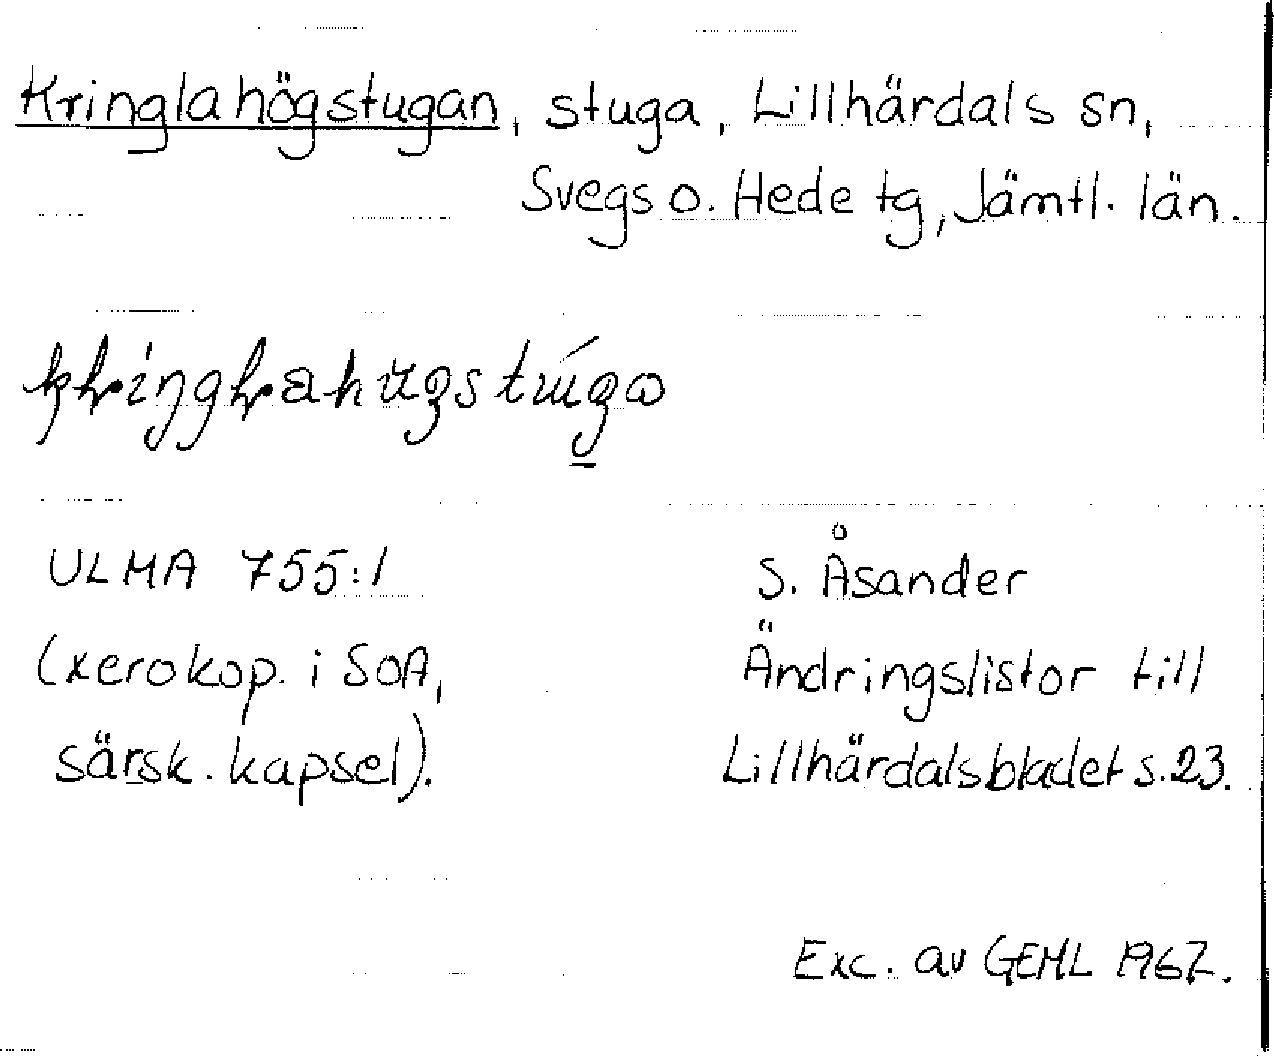 Kringlahögstugan, stuga, Lillhärdals sn,
Svegs o. Hede tg, Jämtl. län.
ULMA 755:1
(xerokop. i SOA,
särsk. kapsel).
S. Åsander
Ändringslistor till
Lillhärdalsbladet s.23.
Exc. av GEHL 1967.